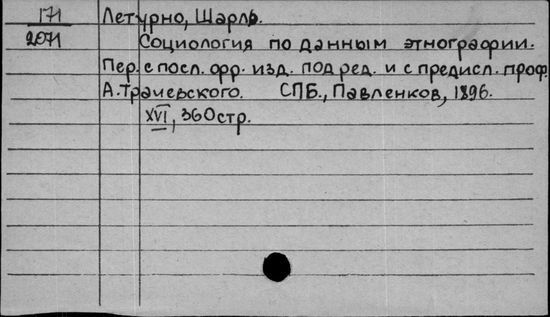 171 Летурно, Шарль.
2071 Социология по данным этнографии.
Пер. с посл. фр. изд. под ред. и с предисл. проф.
А. Трачевского. СПБ., Павленков, 1896.
XVI, 360 стр.